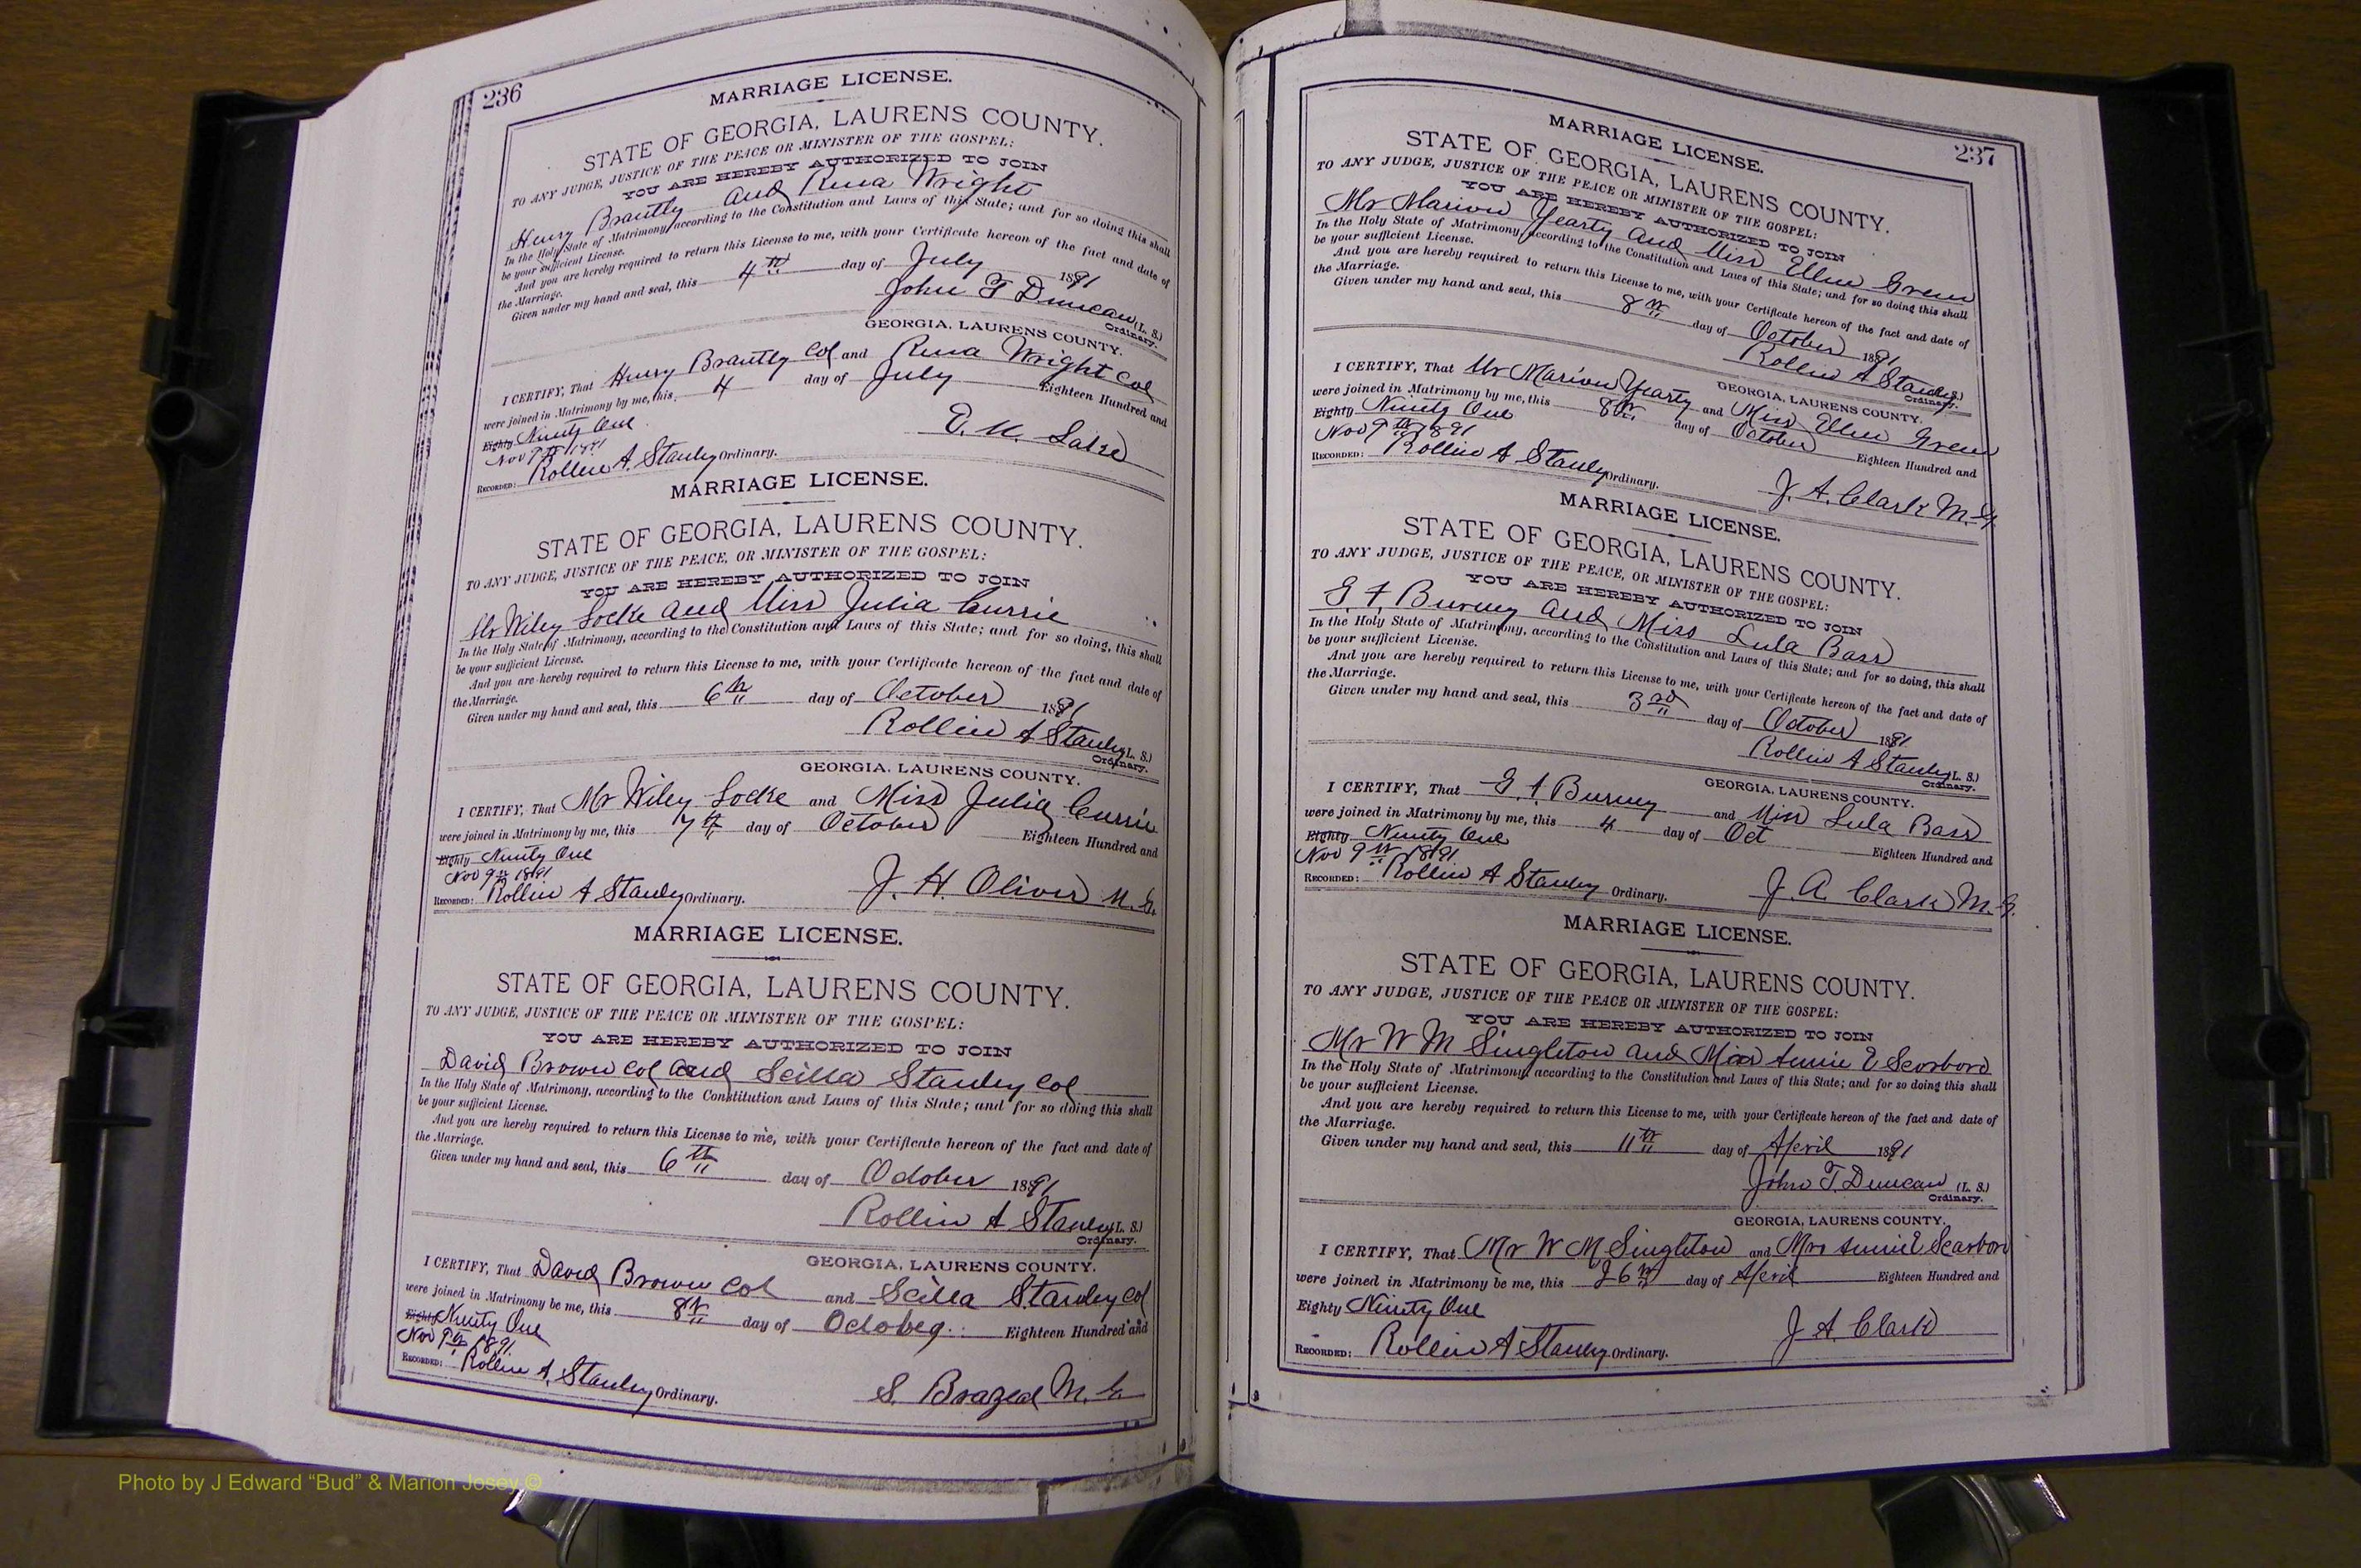 236
MARRIAGE LICENSE.
STATE OF GEORGIA, LAURENS COUNTY.
TO ANY JUDGE, JUSTICE OF THE PEACE OR MINISTER OF THE GOSPEL:
YOU ARE HEREBY AUTHORIZED TO JOIN
Henry Brantly and Rena Wright
In the Holy State of Matrimony according to the Constitution and Laws of this State; and for so doing this shall
be your sufficient License.
And you are hereby required to return this License to me, with your Certificate hereon of the fact and date of
the Marriage.
Given under my hand and seal, this 4th day of July 1891
John T Duncan (L. S.)
Ordinary.
GEORGIA, LAURENS COUNTY.
I CERTIFY, That Henry Brantly Col and Rena Wright Col
were joined in Matrimony by me, this 4 day of July Eighteen Hundred and
Eighty Ninety One
Nov 9th 1891
RECORDED: Rollin A. Stanley Ordinary.
MARRIAGE LICENSE.
STATE OF GEORGIA, LAURENS COUNTY.
TO ANY JUDGE, JUSTICE OF THE PEACE, OR MINISTER OF THE GOSPEL:
YOU ARE HEREBY AUTHORIZED TO JOIN
Mr Wiley Locke and Miss Julia Currie
In the Holy State of Matrimony, according to the Constitution and Laws of this State; and for so doing, this shall
be your sufficient License.
And you are hereby required to return this License to me, with your Certificate hereon of the fact and date of
the Marriage.
Given under my hand and seal, this 6th day of October 1891
Rollin A Stanley (L. S.)
Ordinary.
GEORGIA, LAURENS COUNTY.
I CERTIFY, That Mr Wiley Locke and Miss Julia Currie
were joined in Matrimony by me, this 7th day of October Eighteen Hundred and
Eighty Ninety One
Nov 9th 1891
RECORDED: Rollin A Stanley Ordinary. J. H. Oliver M. G.
MARRIAGE LICENSE.
STATE OF GEORGIA, LAURENS COUNTY.
TO ANY JUDGE, JUSTICE OF THE PEACE OR MINISTER OF THE GOSPEL:
YOU ARE HEREBY AUTHORIZED TO JOIN
David Brown Col and Scilla Stanley Col
In the Holy State of Matrimony, according to the Constitution and Laws of this State; and for so doing this shall
be your sufficient License.
And you are hereby required to return this License to me, with your Certificate hereon of the fact and date of
the Marriage.
Given under my hand and seal, this 6th day of October 1891
Rollin A Stanley (L. S.)
Ordinary.
GEORGIA, LAURENS COUNTY.
I CERTIFY, That David Brown Col and Scilla Stanley Col
were joined in Matrimony be me, this 8th day of October Eighteen Hundred and
Eighty Ninety One
Nov 9th 1891
RECORDED: Rollin A. Stanley Ordinary. S. Brazeal M. G
237
MARRIAGE LICENSE.
STATE OF GEORGIA, LAURENS COUNTY.
TO ANY JUDGE, JUSTICE OF THE PEACE OR MINISTER OF THE GOSPEL:
YOU ARE HEREBY AUTHORIZED TO JOIN
Mr Marion Yearty and Miss Ellen Green
In the Holy State of Matrimony, according to the Constitution and Laws of this State; and for so doing this shall
be your sufficient License.
And you are hereby required to return this License to me, with your Certificate hereon of the fact and date of
the Marriage.
Given under my hand and seal, this 8th day of October 1891
Rollin A Stanley (L. S.)
Ordinary.
GEORGIA, LAURENS COUNTY.
I CERTIFY, That Mr Marion Yearty and Miss Ellen Green
were joined in Matrimony by me, this 8th day of October Eighteen Hundred and
Eighty Ninety One
Nov 9th 1891
RECORDED: Rollin A Stanley Ordinary. J. A. Clark M. G.
MARRIAGE LICENSE.
STATE OF GEORGIA, LAURENS COUNTY.
TO ANY JUDGE, JUSTICE OF THE PEACE, OR MINISTER OF THE GOSPEL:
YOU ARE HEREBY AUTHORIZED TO JOIN
G. F. Burney and Miss Lula Bass
In the Holy State of Matrimony, according to the Constitution and Laws of this State; and for so doing, this shall
be your sufficient License.
And you are hereby required to return this License to me, with your Certificate hereon of the fact and date of
the Marriage.
Given under my hand and seal, this 3rd day of October 1891
Rollin A Stanley (L. S.)
Ordinary.
GEORGIA, LAURENS COUNTY.
I CERTIFY, That G. F. Burney and Miss Lula Bass
were joined in Matrimony by me, this 4 day of Oct Eighteen Hundred and
Eighty Ninety One
Nov 9th 1891
RECORDED: Rollin A Stanley Ordinary. J. A. Clark M. G.
MARRIAGE LICENSE.
STATE OF GEORGIA, LAURENS COUNTY.
TO ANY JUDGE, JUSTICE OF THE PEACE OR MINISTER OF THE GOSPEL:
YOU ARE HEREBY AUTHORIZED TO JOIN
Mr W M Singleton and Annie E Scarboro
In the Holy State of Matrimony, according to the Constitution and Laws of this State; and for so doing this shall
be your sufficient License.
And you are hereby required to return this License to me, with your Certificate hereon of the fact and date of
the Marriage.
Given under my hand and seal, this 11th day of April 1891
John T. Duncan (L. S.)
Ordinary.
GEORGIA, LAURENS COUNTY.
I CERTIFY, That Mr W M Singleton and Annie E Scarboro
were joined in Matrimony be me, this 26th day of April Eighteen Hundred and
Eighty Ninety One
J A. Clark
RECORDED: Rollin A Stanley Ordinary.
Photo by J Edward “Bud” & Marion Josey ©